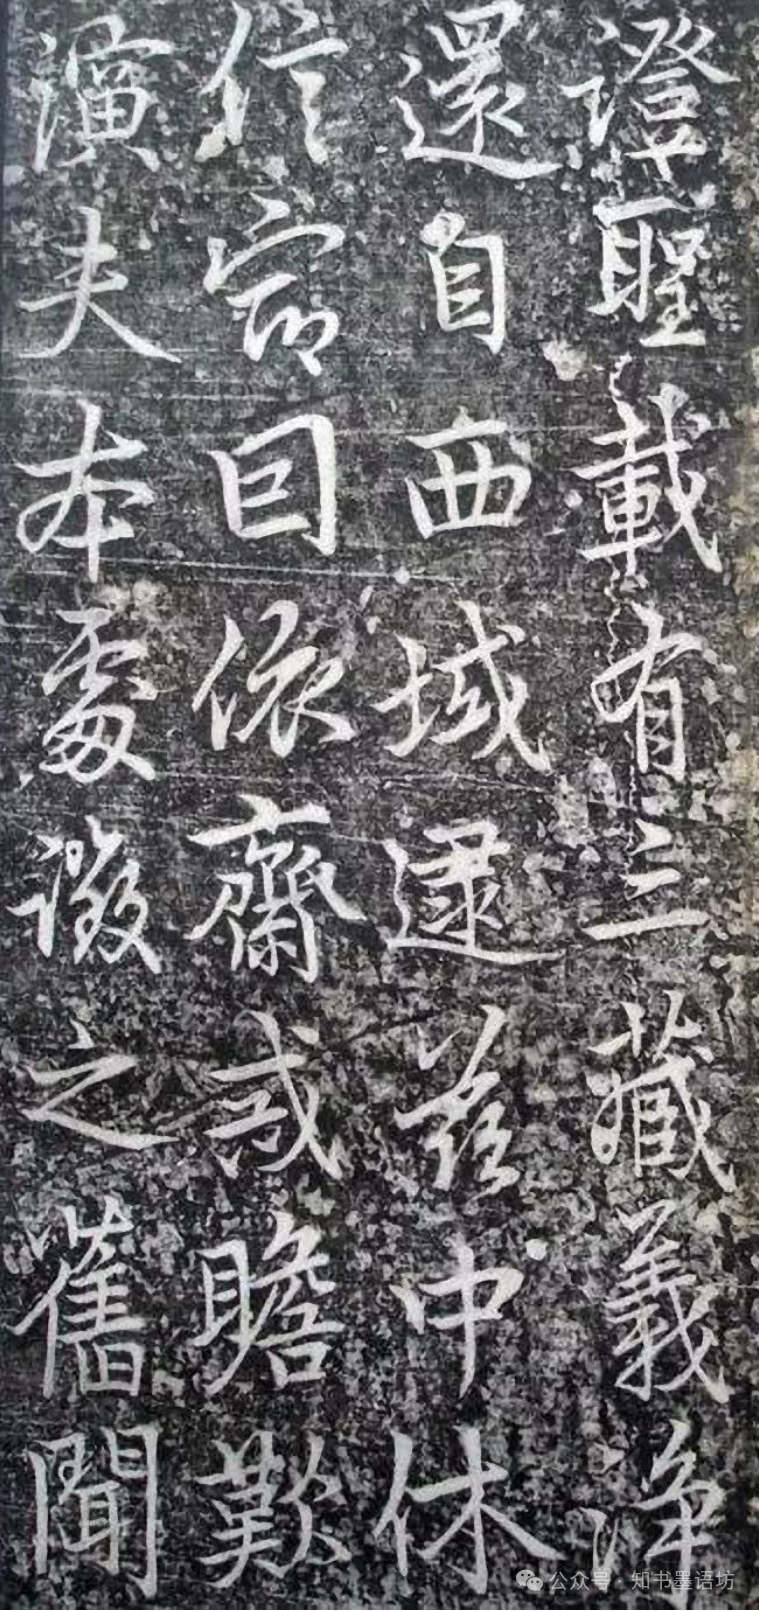 證聖載有三藏義淨
還自西域逮茲中休
信宿因依齋戒瞻歎
演夫本處徵之舊聞
公众号·知书墨语坊